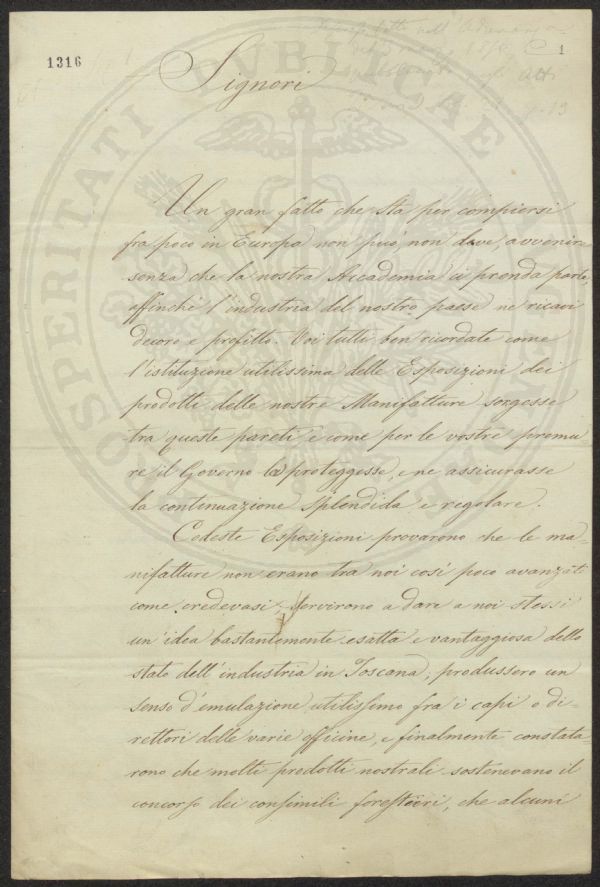 1316
1
Signori
Un gran fatto che sta per compiersi
fra poco in Europa non può, non deve, avvenire
senza che la nostra Accademia ci prenda parte,
affinché l'industria del nostro paese ne ricavi
decoro e profitto. Voi tutti ben ricordate come
l'istituzione utilissima delle Esposizioni dei
prodotti delle nostre Manifatture sorgesse
tra queste pareti e come per le vostre premu
re il Governo la proteggesse, e ne assicurasse
la continuazione splendida e regolare.
Codeste Esposizioni provarono che le ma-
nifatture non erano tra noi così poco avanzate
come credevasi, servirono a dare a noi stessi
un'idea bastantemente esatta e vantaggiosa dello
stato dell'industria in Toscana, produssero un
senso d'emulazione utilissimo fra i capi o di-
rettori delle varie officine, e finalmente constata-
rono che molti prodotti nostrali sostenevano il
concorso dei consimili forestieri, che alcuni
PROSPERITATI PUBLICAE